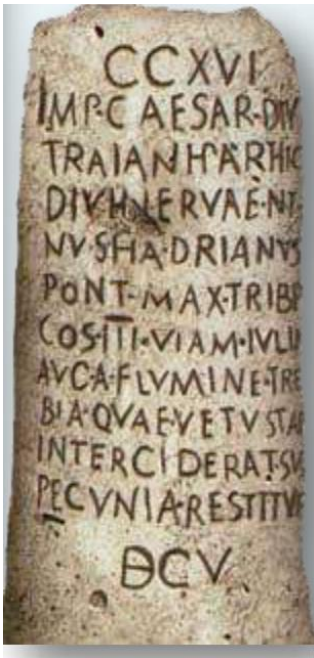 CCXVI
IMP·CAESAR·DIVI
TRAIANI·PARTHIC
DIVI·NERVAE·N·T
NVS·HADRIANVS
PONT·MAX·TRIB·P
COS·III·VIAM·IVLIA
AVG·A·FLVMINE·TRE
BIA·QVAE·VETVSTAT
INTERCIDERAT·SVA
PECVNIA·RESTITVI
DCV